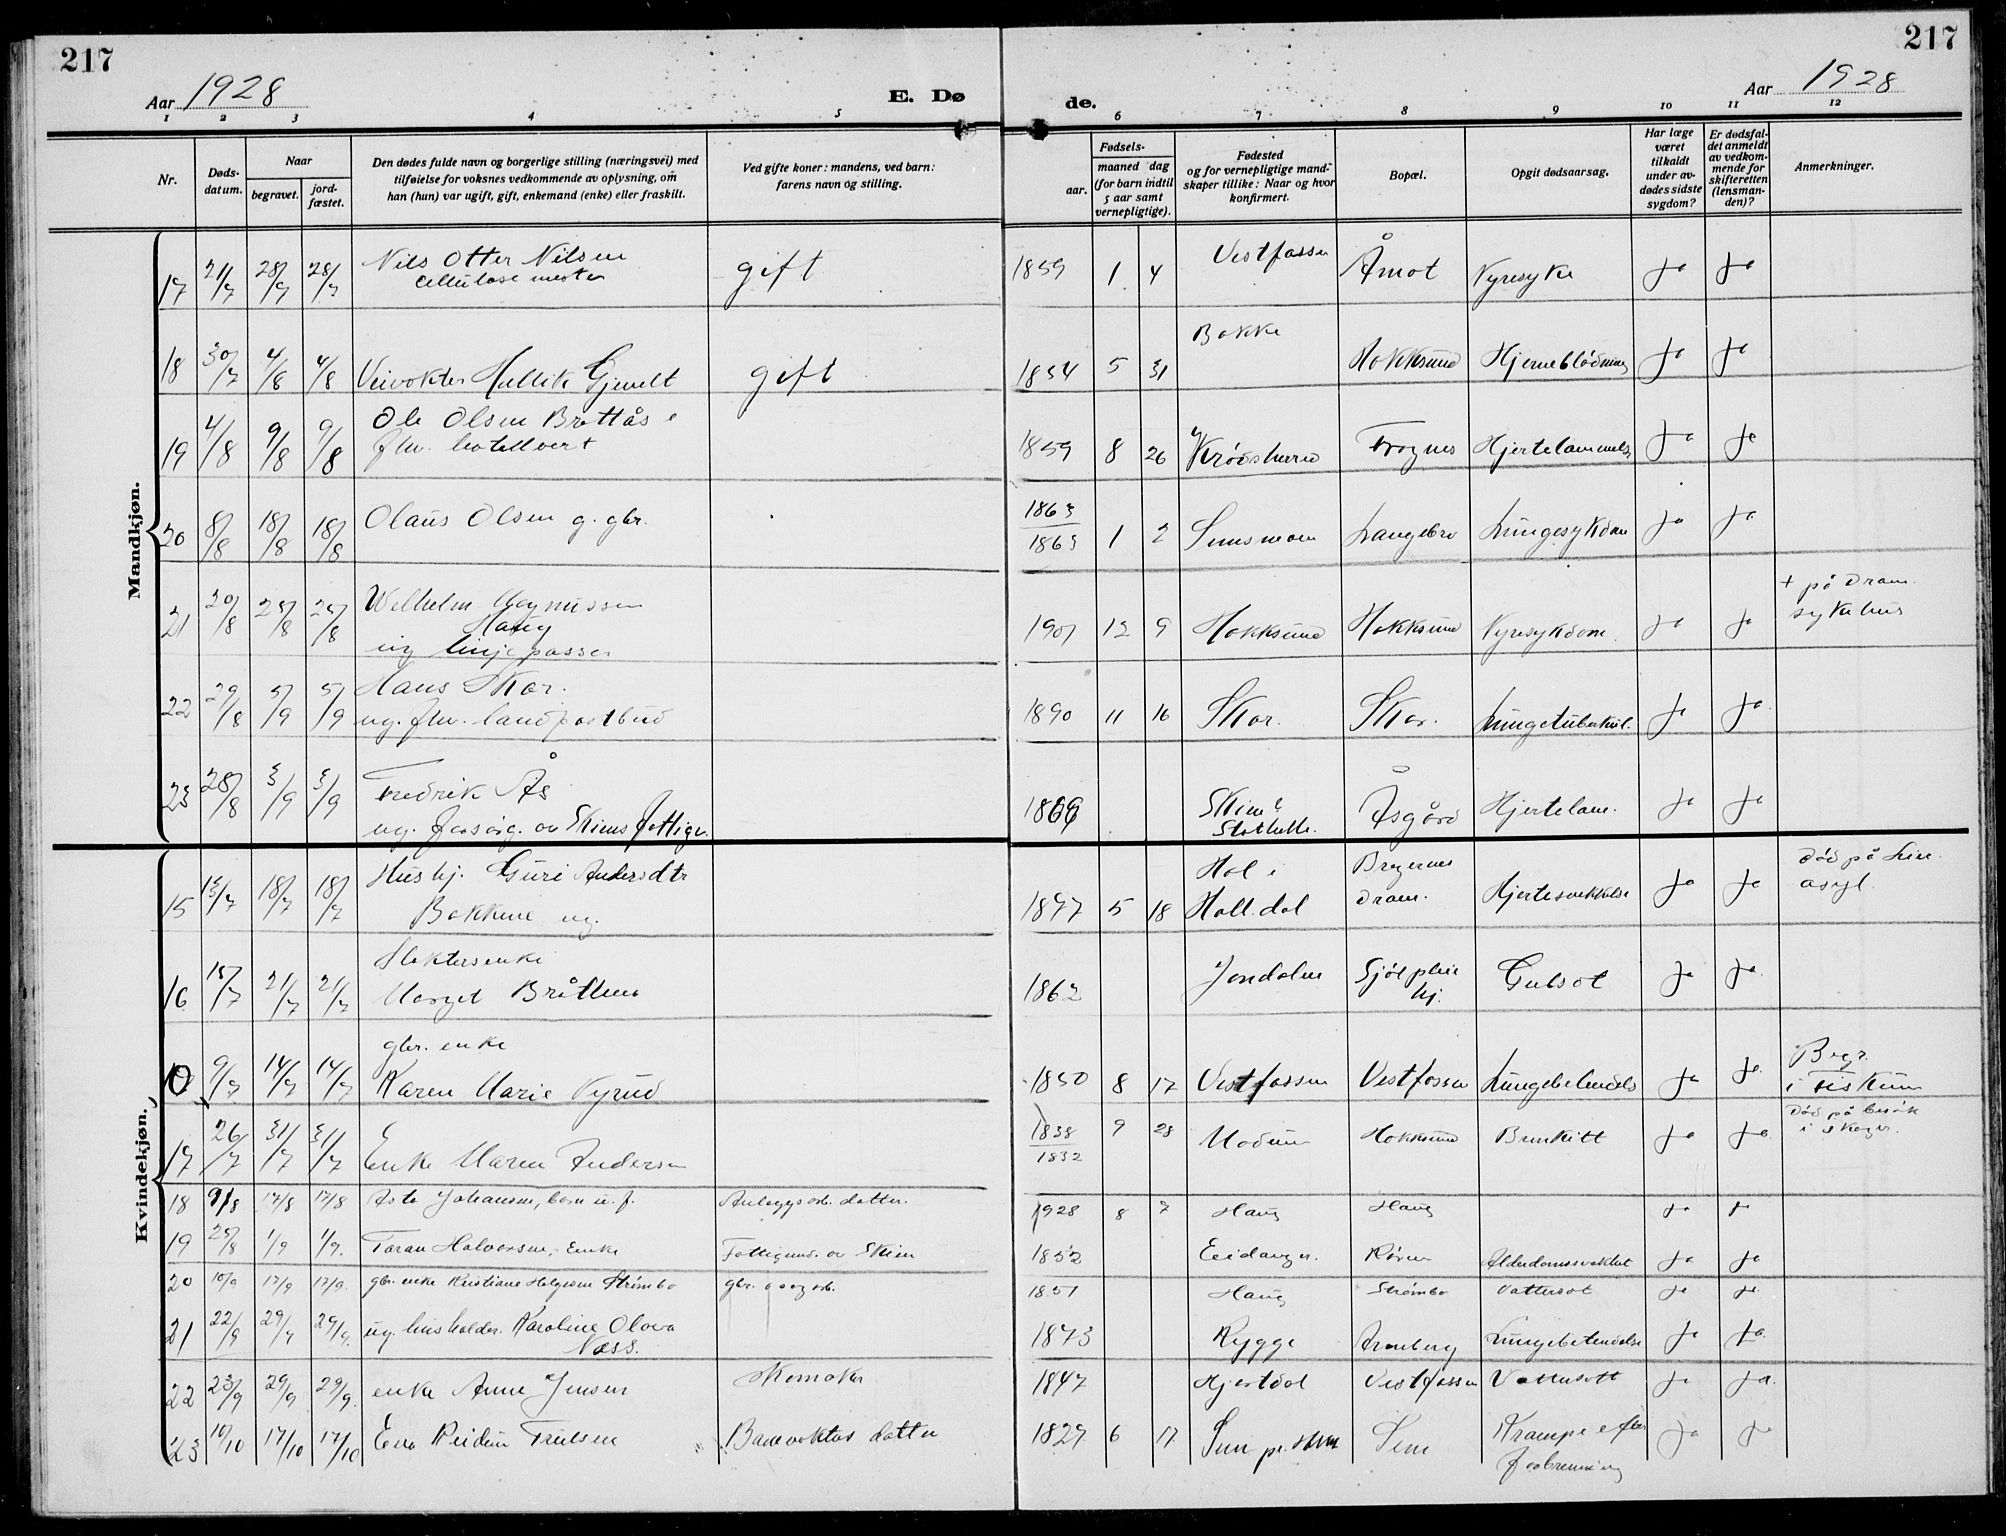 217
217
Aar 1928
E. Dø
de.
Aar 1928
1 2 3 4 5 6 7 8 9 10 11 12
Nr.
Døds-
datum.
Naar
begravet.
jord-
fæstet.
Den dødes fulde navn og borgerlige stilling (næringsvei) med
tilføielse for voksnes vedkommende av oplysning, om
han (hun) var ugift, gift, enkemand (enke) eller fraskilt.
Ved gifte koner: mandens, ved barn:
farens navn og stilling.
Fødsels-
aar.
maaned dag
(for barn indtil
5 aar samt
vernepligtige).
Fødested
og for vernepligtige mand-
skaper tillike: Naar og hvor
konfirmert.
Bopæl.
Opgit dødsaarsag.
Har læge
været
tilkaldt
under av-
dødes sidste
sygdom?
Er dødsfal-
det anmeldt
av vedkom-
mende for
skifteretten
(lensman-
den)?
Anmerkninger.
Mandkjøn.
17 21/7 28/7 28/7 Nils Otter Nilsen gift 1859 1 4 Vestfossen Åmot Nyresyke ja ja
Cellulosemester
18 30/7 4/8 4/8 Veivokter Hellik Gjevelt gift 1854 5 31 Bakke Hokksund Hjerneblødning ja ja
19 4/8 9/8 9/8 Ole Olsen Bråttås 1859 8 26 Krødsherred Frognes Hjertelammelse ja ja
fhv. hotellvert
20 8/8 18/8 18/8 Olaus Olsen g. gbr. 1863 1 2 Semsmoen Langebro Lungesykdom ja ja
1865
21 20/8 25/8 25/8 Wilhelm Magnussen 1901 12 9 Hokksund Hokksund Nyresykdom ja ja + på Dram.
Haug sykehus
ug linjepasser
22 29/8 5/9 5/9 Hans Skar. 1890 11 16 Skar. Skar. Lungetuberkul. ja ja
ug. fhv. landpostbud
23 28/8 3/9 3/9 Fredrik Ås 1866 Skien Åsgård Hjertelam. ja ja
ug. forsørg. av Skiens fattigv. Slothellt.
Kvindekjøn.
15 13/7 18/7 18/7 Hushj. Guri Andersdtr 1897 5 18 Hol i Bragernes Hjertesvekkelse ja ja Død på Lier
Bakkene ug. Hall.dal Dram. asyl.
16 15/7 21/7 21/7 Slakterenke 1862 Jondalen Sjøl pleiehj. Gulsot ja ja
Marget Bråthen
0 9/7 14/7 14/7 gbr. enke 1850 8 17 Vestfossen Vestfossen Lungebetendels ja ja Begr.
Karen Marie Nyrud i Fiskum
17 26/7 31/7 31/7 Enke Maren Andersen 1838 9 28 Modum Hokksund Benkitt ja ja Død på besøk
1832 i Skoger.
18 9/8 17/8 17/8 Asta Johansen, barn u. f. Anleggsarb. datter. 1928 8 7 Haug Haug ja ja
19 25/8 1/9 1/9. Taran Halvorsen, Enke Fattigund. av Skien 1852 Eidanger. Røren Alderdomssvakhet ja ja
20 10/9 17/9 17/9. gbr. enke Kristiane Helgesen Strømbo gbr. og sagarb. 1851 Haug Strømbo Vattersot ja ja
21 22/9 29/9 29/9. ug. husholder. Karoline Olova 1873 Rygge Arenberg Lungebetendelse ja ja.
Næss.
22 23/9 29/9 29/9. enke Anne Jensen Skomaker 1847 Hjertdal Vestfossen Vattersott ja ja.
23 10/10 17/10 17/10 Eva Reidun Truelsen Banevoktes datter 1927 6 17 Sem Sem Krampe efter ja ja
forbrenning